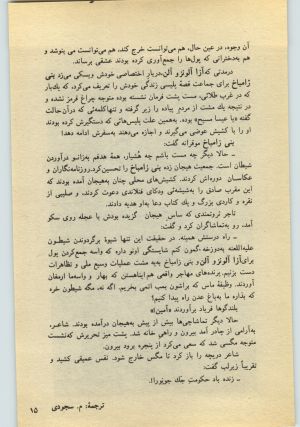 آن وجوه، در عین حال، هم می‌توانست خرج کند، هم می‌توانست می بنوشد و
هم به‌دخترانی که پول‌ها را جمع‌آوری کرده بودند عشقی برساند.
درمدتی که آزا آلونزو آلن، درباز اختصاصی خودش ویسکی می‌زد بنی
زامباخ برای جماعت قصهٔ پلیسی زندگی خودش را تعریف می‌کرد، که یك‌بار
که در غرب طلائی، مست پشت فرمان نشسته بوده متوجه چراغ قرمز نشده و
در نتیجه یك مشت از مردم پیاده را زیر گرفته و تنها کلمه‌ئی که درآن حالت
گفته «یا عیسا مسیح» بوده. به‌همین علت پلیس‌هائی که دستگیرش کرده بودند
او را با کشیش عوضی می‌گیرند و اجازه می‌دهند به‌سفرش ادامه دهد!
بنی زامباخ موقرانه گفت:
ــ حالا دیگر چه مست باشم چه هشیار، همهٔ هدفم به‌زانو درآوردن
شیطان است. جمعیت هیجان زده بنی زامباخ را تحسین کرد. روزنامه‌نگاران و
عکاسان دوره‌اش کردند. کشیش‌های محلی چنان به‌هیجان آمده بودند که
این مقرب صادق را به‌شیشه‌ئی ودکای فنلاندی دعوت کردند، و صلیبی از
نقره و کاردی بزرگ و یك کتاب دعا به‌او هدیه دادند.
تاجر ثروتمندی که ساس هیجان گزیده بودش با عجله روی سکو
آمد، رو به‌تماشاگران کرد و گفت:
ــ راه درستش همینه. در حقیقت این تنها شیوهٔ برگردوندن شیطون
علیه‌اللعنه به‌دوزخه. گمون کنم شایستگی اونو داره که واسه جمع‌کردن پول
برای آزا آلونزو آلن و بنی زامباخ به‌یه مشت عملیات وسیع ملی و تظاهرات
دست بزنیم. برنده‌های مهاجر واقعی هم اینا هستن که بهار و واسه‌ما ارمغان
آوردند. وظیفهٔ ماس که براشون بمب اتمی بخریم. اگه نه، مگه شیطون خره
که بذاره ما به‌باغ عدن راه پیدا کنیم؟
بلندگوها فریاد برآوردند «آمین!»
حالا دیگر تماشاچی‌ها بیش از پیش به‌هیجان درآمده بودند. شاعر،
به‌آرامی از چادر آمد بیرون و راهی خانه شد. پشت میز تحریرش که‌نشست
متوجه مگسی شد که سعی می‌کرد از پنجره برود بیرون.
شاعر دریچه را باز کرد تا مگس خارج شود. نفس عمیقی کشید و
تقریباً زیرلب گفت:
ــ زنده باد حکومت جك جونورا!.
ترجمهٔ: م. سجودی
۱۵